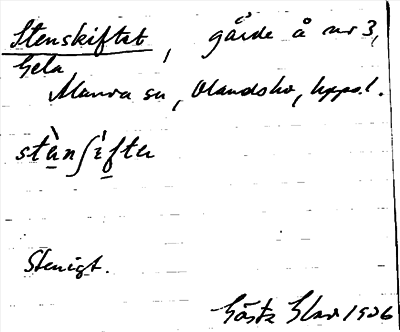 Stenskiftet, gärde å nr 3,
Gela
Munra sn, Olandshd, Uppsl.
stȁnʃìftɘ
Stenigt.
Gösta Olar 1926